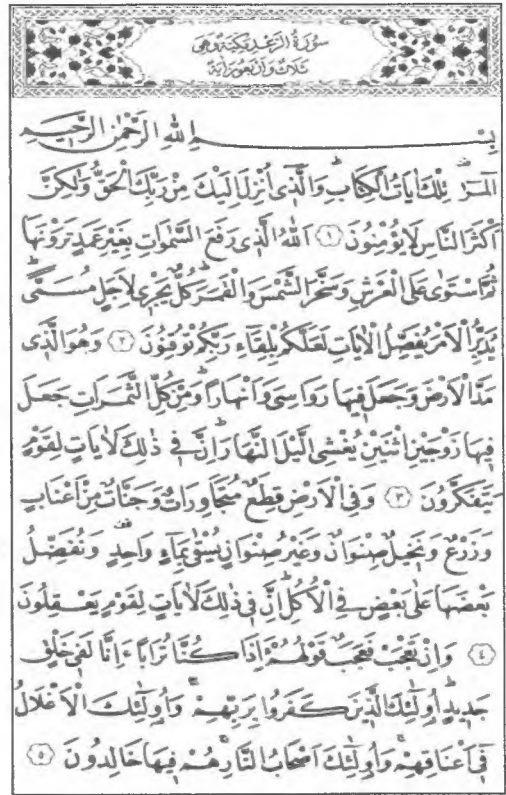 سُورَةُ الرَّعْدِ مَكِّيَّةٌ وَهِىَ
ثَلَاثٌ وَاَرْبَعُونَ اٰيَةً
بِسْــــــــمِ اللّٰهِ الرَّحْمٰنِ الرَّحِيمِ
الٓمٓرٰ تِلْكَ اٰيَاتُ الْكِتَابِۜ وَالَّذِٓى اُنْزِلَ اِلَيْكَ مِنْ رَبِّكَ الْحَقُّ وَلٰكِنَّ
اَكْثَرَ النَّاسِ لَا يُؤْمِنُونَ ﴿١﴾ اَللّٰهُ الَّذِى رَفَعَ السَّمٰوَاتِ بِغَيْرِ عَمَدٍ تَرَوْنَهَا
ثُمَّ اسْتَوٰى عَلَى الْعَرْشِ وَسَخَّرَ الشَّمْسَ وَالْقَمَرَۜ كُلٌّ يَجْرِى لِاَجَلٍ مُسَمًّىۜ
يُدَبِّرُ الْاَمْرَ يُفَصِّلُ الْاٰيَاتِ لَعَلَّكُمْ بِلِقَٓاءِ رَبِّكُمْ تُوقِنُونَ ﴿٢﴾ وَهُوَ الَّذِى
مَدَّ الْاَرْضَ وَجَعَلَ فِيهَا رَوَاسِىَ وَاَنْهَارًاۜ وَمِنْ كُلِّ الثَّمَرَاتِ جَعَلَ
فِيهَا زَوْجَيْنِ اثْنَيْنِ يُغْشِى الَّيْلَ النَّهَارَۜ اِنَّ فِى ذٰلِكَ لَاٰيَاتٍ لِقَوْمٍ
يَتَفَكَّرُونَ ﴿٣﴾ وَفِى الْاَرْضِ قِطَعٌ مُتَجَاوِرَاتٌ وَجَنَّاتٌ مِنْ اَعْنَابٍ
وَزَرْعٌ وَنَخِيلٌ صِنْوَانٌ وَغَيْرُ صِنْوَانٍ يُسْقٰى بِمَٓاءٍ وَاحِدٍ۠ وَنُفَضِّلُ
بَعْضَهَا عَلٰى بَعْضٍ فِى الْاُكُلِۜ اِنَّ فِى ذٰلِكَ لَاٰيَاتٍ لِقَوْمٍ يَعْقِلُونَ
﴿٤﴾ وَاِنْ تَعْجَبْ فَعَجَبٌ قَوْلُهُمْ ءَاِذَا كُنَّا تُرَابًا ءَاِنَّا لَفِى خَلْقٍ
جَدِيدٍۜ اُولٰٓئِكَ الَّذِينَ كَفَرُوا بِرَبِّهِمْۚ وَاُولٰٓئِكَ الْاَغْلَالُ
فِٓى اَعْنَاقِهِمْۚ وَاُولٰٓئِكَ اَصْحَابُ النَّارِۚ هُمْ فِيهَا خَالِدُونَ ﴿٥﴾